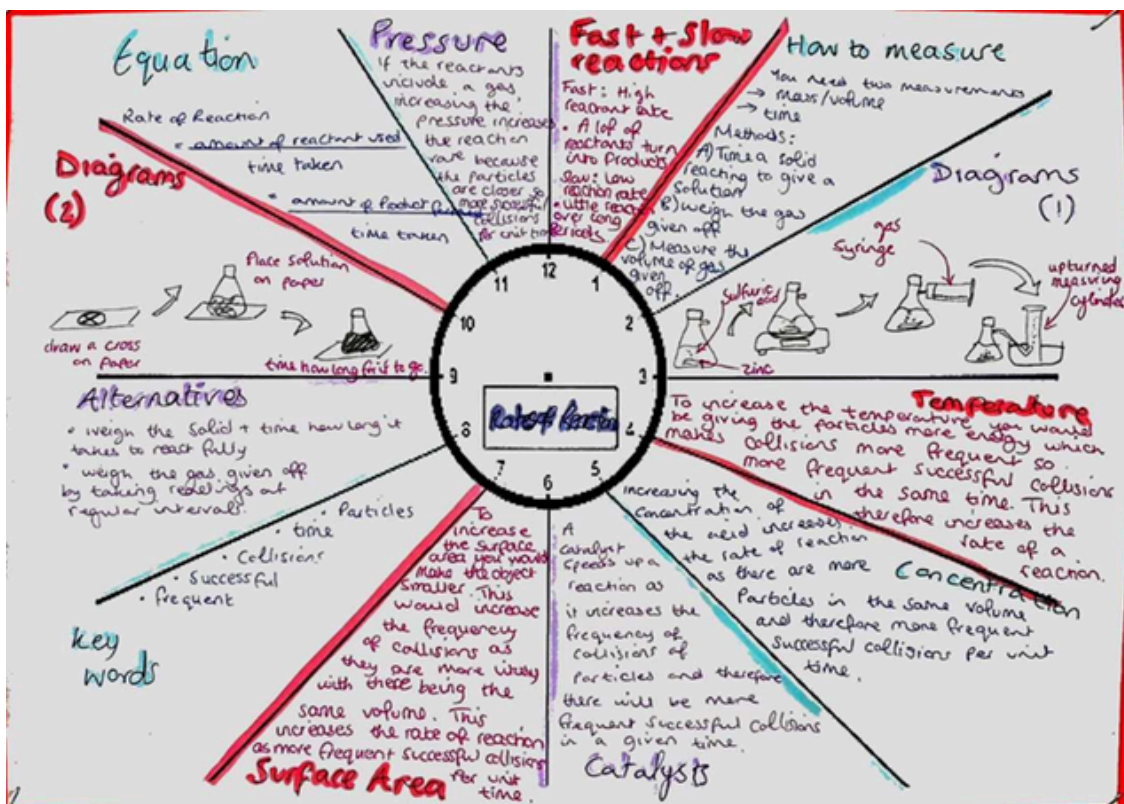 Equation
Rate of Reaction
= amount of reactant used
time taken
= amount of
time taken
Pressure
if the reactants
include a gas
increasing the
pressure increases
the reaction
because
the particles
are closer so
more successful
collisions
Per unit
Fast + Slow
reactions
Fast: High
reactant rate
• A lot of
reactants turn
into products
Slow: Low
reaction rate
• little
over long
How to measure
You need two measurements
→ mass/volume
→ time
Methods:
A) Time a solid
reacting to give a
solution
B) weigh the gas
given off
C) Measure the
volume of gas
given
off.
Diagrams
(1)
Sulfuric
acid
zinc
gas
syringe
upturned
measuring
cylinder
Temperature
To increase the temperature you would
be giving the particles more energy which
makes collisions more frequent so
more frequent successful collisions
in the same time. This
therefore increases the
rate of a
reaction.
increasing the
concentration of
the acid increases
the rate of reaction
as there are more
Concentration
Particles in the same volume
and therefore more frequent
successful collisions per unit
time.
A
catalyst
speeds up a
reaction as
it increases the
frequency of
collisions of
particles and therefore
there will be more
frequent successful collisions
in a given time.
Catalysts
To
increase
the surface
area you would
make the object
smaller. This
would increase
the frequency
of collisions as
they are more
with there being the
same volume. This
increases the rate of reaction
as more frequent successful collisions
Per unit
time.
Surface Area
• Particles
• time
• Collisions
• Successful
• frequent
Key
words
Alternatives
• weigh the solid + time how long it
takes to react fully
• weigh the gas given off
by taking at
regular intervals.
Diagrams
(2)
draw a cross
on paper
Place solution
on paper
time how long for it to go.
12
1
2
3
4
5
6
7
8
9
10
11
Rate of Reaction